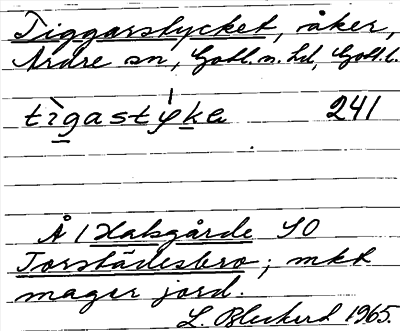 Tiggarstycket, åker,
Ardre sn, Gotl. n. hd, Gotl. l.
tìgastyke 241
Å / Halsgårde SO
Torstädesbro; mkt
mager jord.
1965.